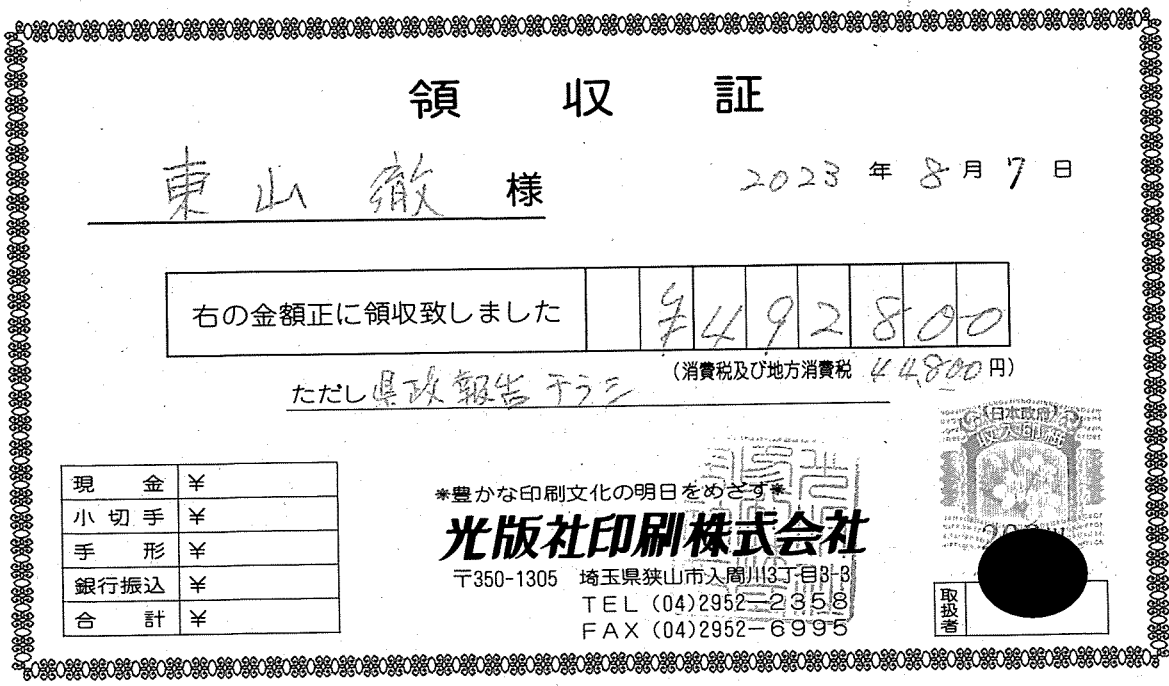 領収証
東山 徹 様
2023年8月7日
右の金額正に領収致しました ¥492800
(消費税及び地方消費税 44,800円)
ただし 県政報告チラシ
日本政府
収入印紙
現金 ¥
小切手 ¥
手形 ¥
銀行振込 ¥
合計 ¥
*豊かな印刷文化の明日をめざす*
光版社印刷株式会社
〒350-1305 埼玉県狭山市入間川3丁目3-3
TEL (04)2952-2358
FAX (04)2952-6995
取扱者